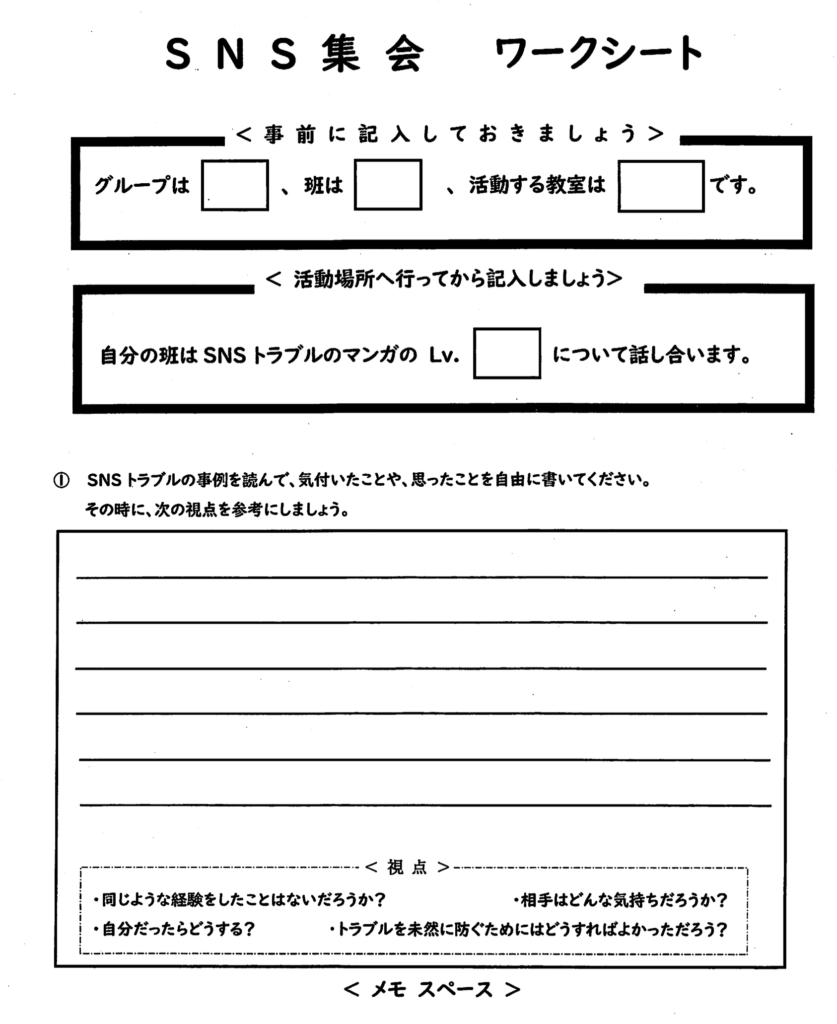 SNS集会 ワークシート
＜事前に記入しておきましょう＞
グループは 、班は 、活動する教室は です。
＜ 活動場所へ行ってから記入しましょう＞
自分の班は SNS トラブルのマンガの Lv. について話し合います。
① SNS トラブルの事例を読んで、気付いたことや、思ったことを自由に書いてください。
その時に、次の視点を参考にしましょう。
＜ 視 点 ＞
・同じような経験をしたことはないだろうか？ ・相手はどんな気持ちだろうか？
・自分だったらどうする？ ・トラブルを未然に防ぐためにはどうすればよかっただろう？
＜ メモ スペース ＞